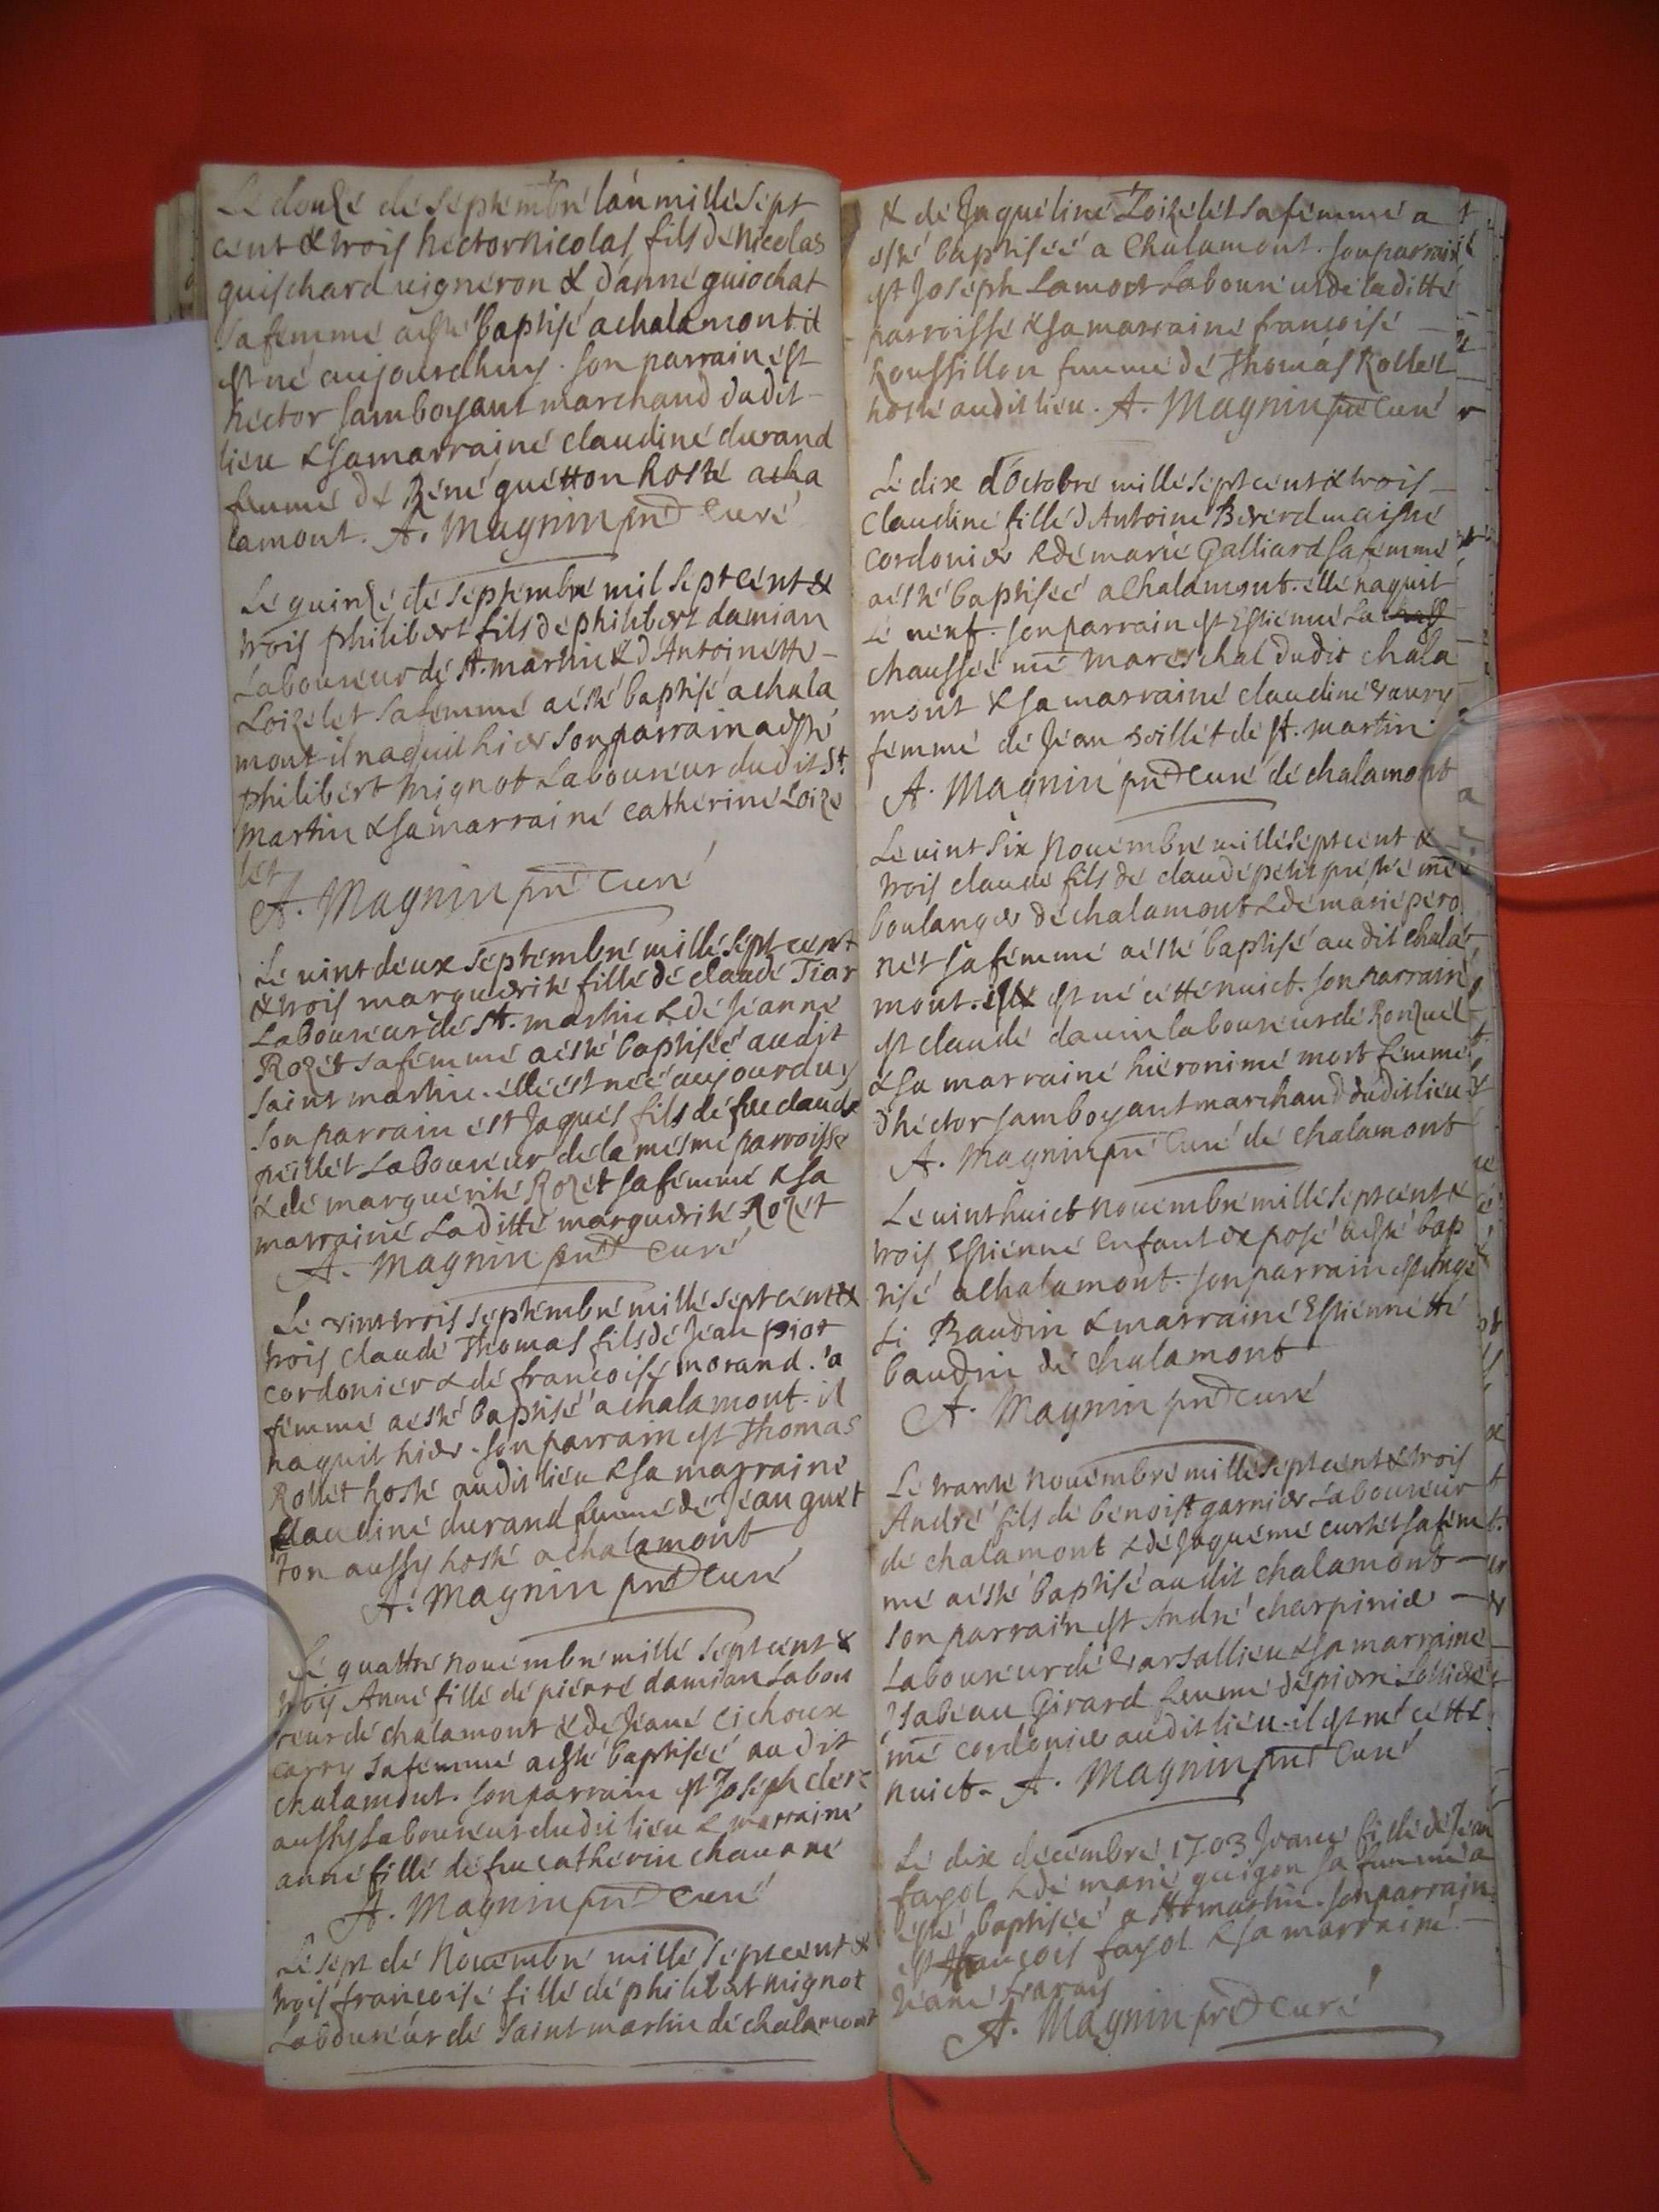 Le douze de septembre lan mille sept
cent & trois hector nicolas fils de nicolas
guischard uigneron & d'anne guiochat
sa femme a esté baptisé a chalamont. il
est né aujourdhuy. son parrain est
hector Jamboyant marchand dudit
lieu & sa marraine claudine durand
femme de René guetton hoste a cha
lamont. A. Magnin prê Curé
Le quinze de septembre mil sept cent &
trois philibert fils de philibert damian
Laboureur de St. martin & d'Antoinette
Loizelet sa femme a esté baptisé a chala
mont il naquit hier son parrain a esté
philibert mignot Laboureur dudit St.
martin & sa marraine Catherine Loize
let
A. Magnin prê Curé
Le uint deux septembre mille sept cent
& trois marguerite fille de claude Tiar
Laboureur de St. martin & de Jeanne
Rozet sa femme a esté baptiseé audit
saint martin. elle est neé aujourduy
son parrain est Jaques fils de feu claude
peillet Laboureur de la mesme parroisse
& de marguerite Rozet sa femme & sa
marraine Laditte marguerite Rozet
A. Magnin prê Curé
Le vint trois septembre mille sept cent &
trois claude Thomas fils de Jean piot
cordonier & de françoise morand. sa
femme a esté baptisé a chalamont. il
naquit hier. son parrain est Thomas
Rollet hoste audit lieu & sa marraine
Claudine durand femme de Jean guet
ton aussy hoste a chalamont
A. Magnin prê Curé
Le quattre nouembre mille sept cent &
trois Anne fille de pierre damian Labou
reur de chalamont & de Jeane
carry sa femme a esté baptiseé audit
chalamont. son parrain est Joseph clerc
aussy Laboureur dudit lieu & marraine
anne fille de feu catherin chauane
A. Magnin prê Curé
Le sept de Nouembre mille sept cent &
trois françoise fille de philibert mignot
Laboureur de saint martin de chalamont
& de Jaqueline Loizelet sa femme a
esté baptiseé a Chalamont. son parrain
est Joseph Lamort Laboureur de laditte
parroisse & sa marraine françoise
Roussillon femme de Thomas Rollet
hoste audit lieu. A. Magnin prê Curé
Le dix d'Octobre mille sept cent & trois
Claudine fille d'Antoine Bererd maistre
Cordonier & de marie Galliard sa femme
a esté baptiseé a Chalamont. elle naquit
Le neuf. son parrain est Estienne La
chausseé mê mareschal dudit chala
mont & sa marraine claudine
femme de Jean de St. martin
A. Magnin prê Curé de chalamont
Le uint six Nouembre mille sept cent &
trois claude fils de claude petit mê
boulanger de chalamont & de marie pero
net sa femme a esté baptisé audit chala
mont. est né cette nuict. son parrain
est claude dauin laboureur de Ronzuel
& sa marraine hieronime mort femme
d'hector Jamboyant marchand dudit lieu
A. Magnin prê Curé de chalamont
Le uint huict nouembre mille sept cent &
trois Estienne Enfant exposé a esté bap
tisé a Chalamont. son parrain est
Baudin & marraine Estiennette
baudin de chalamont
A. Magnin prê curé
Le trante Nouembre mille sept cent & trois
André fils de benoist garnier Laboureur
de chalamont & de Jaqueme curtet sa fem
me a esté baptisé audit chalamont
son parrain est André charpinier
Laboureur de Versallieu & sa marraine
ysabeau Girard femme de pierre
mê cordonier audit lieu. il est né cette
nuict. A. Magnin prê Curé
Le dix decembre 1703 Jeane fille de Jean
fayol & de marie guigon sa femme a
esté baptiseé a St martin. son parrain
est françois fayol & sa marraine
Jeane
A. Magnin prê Curé